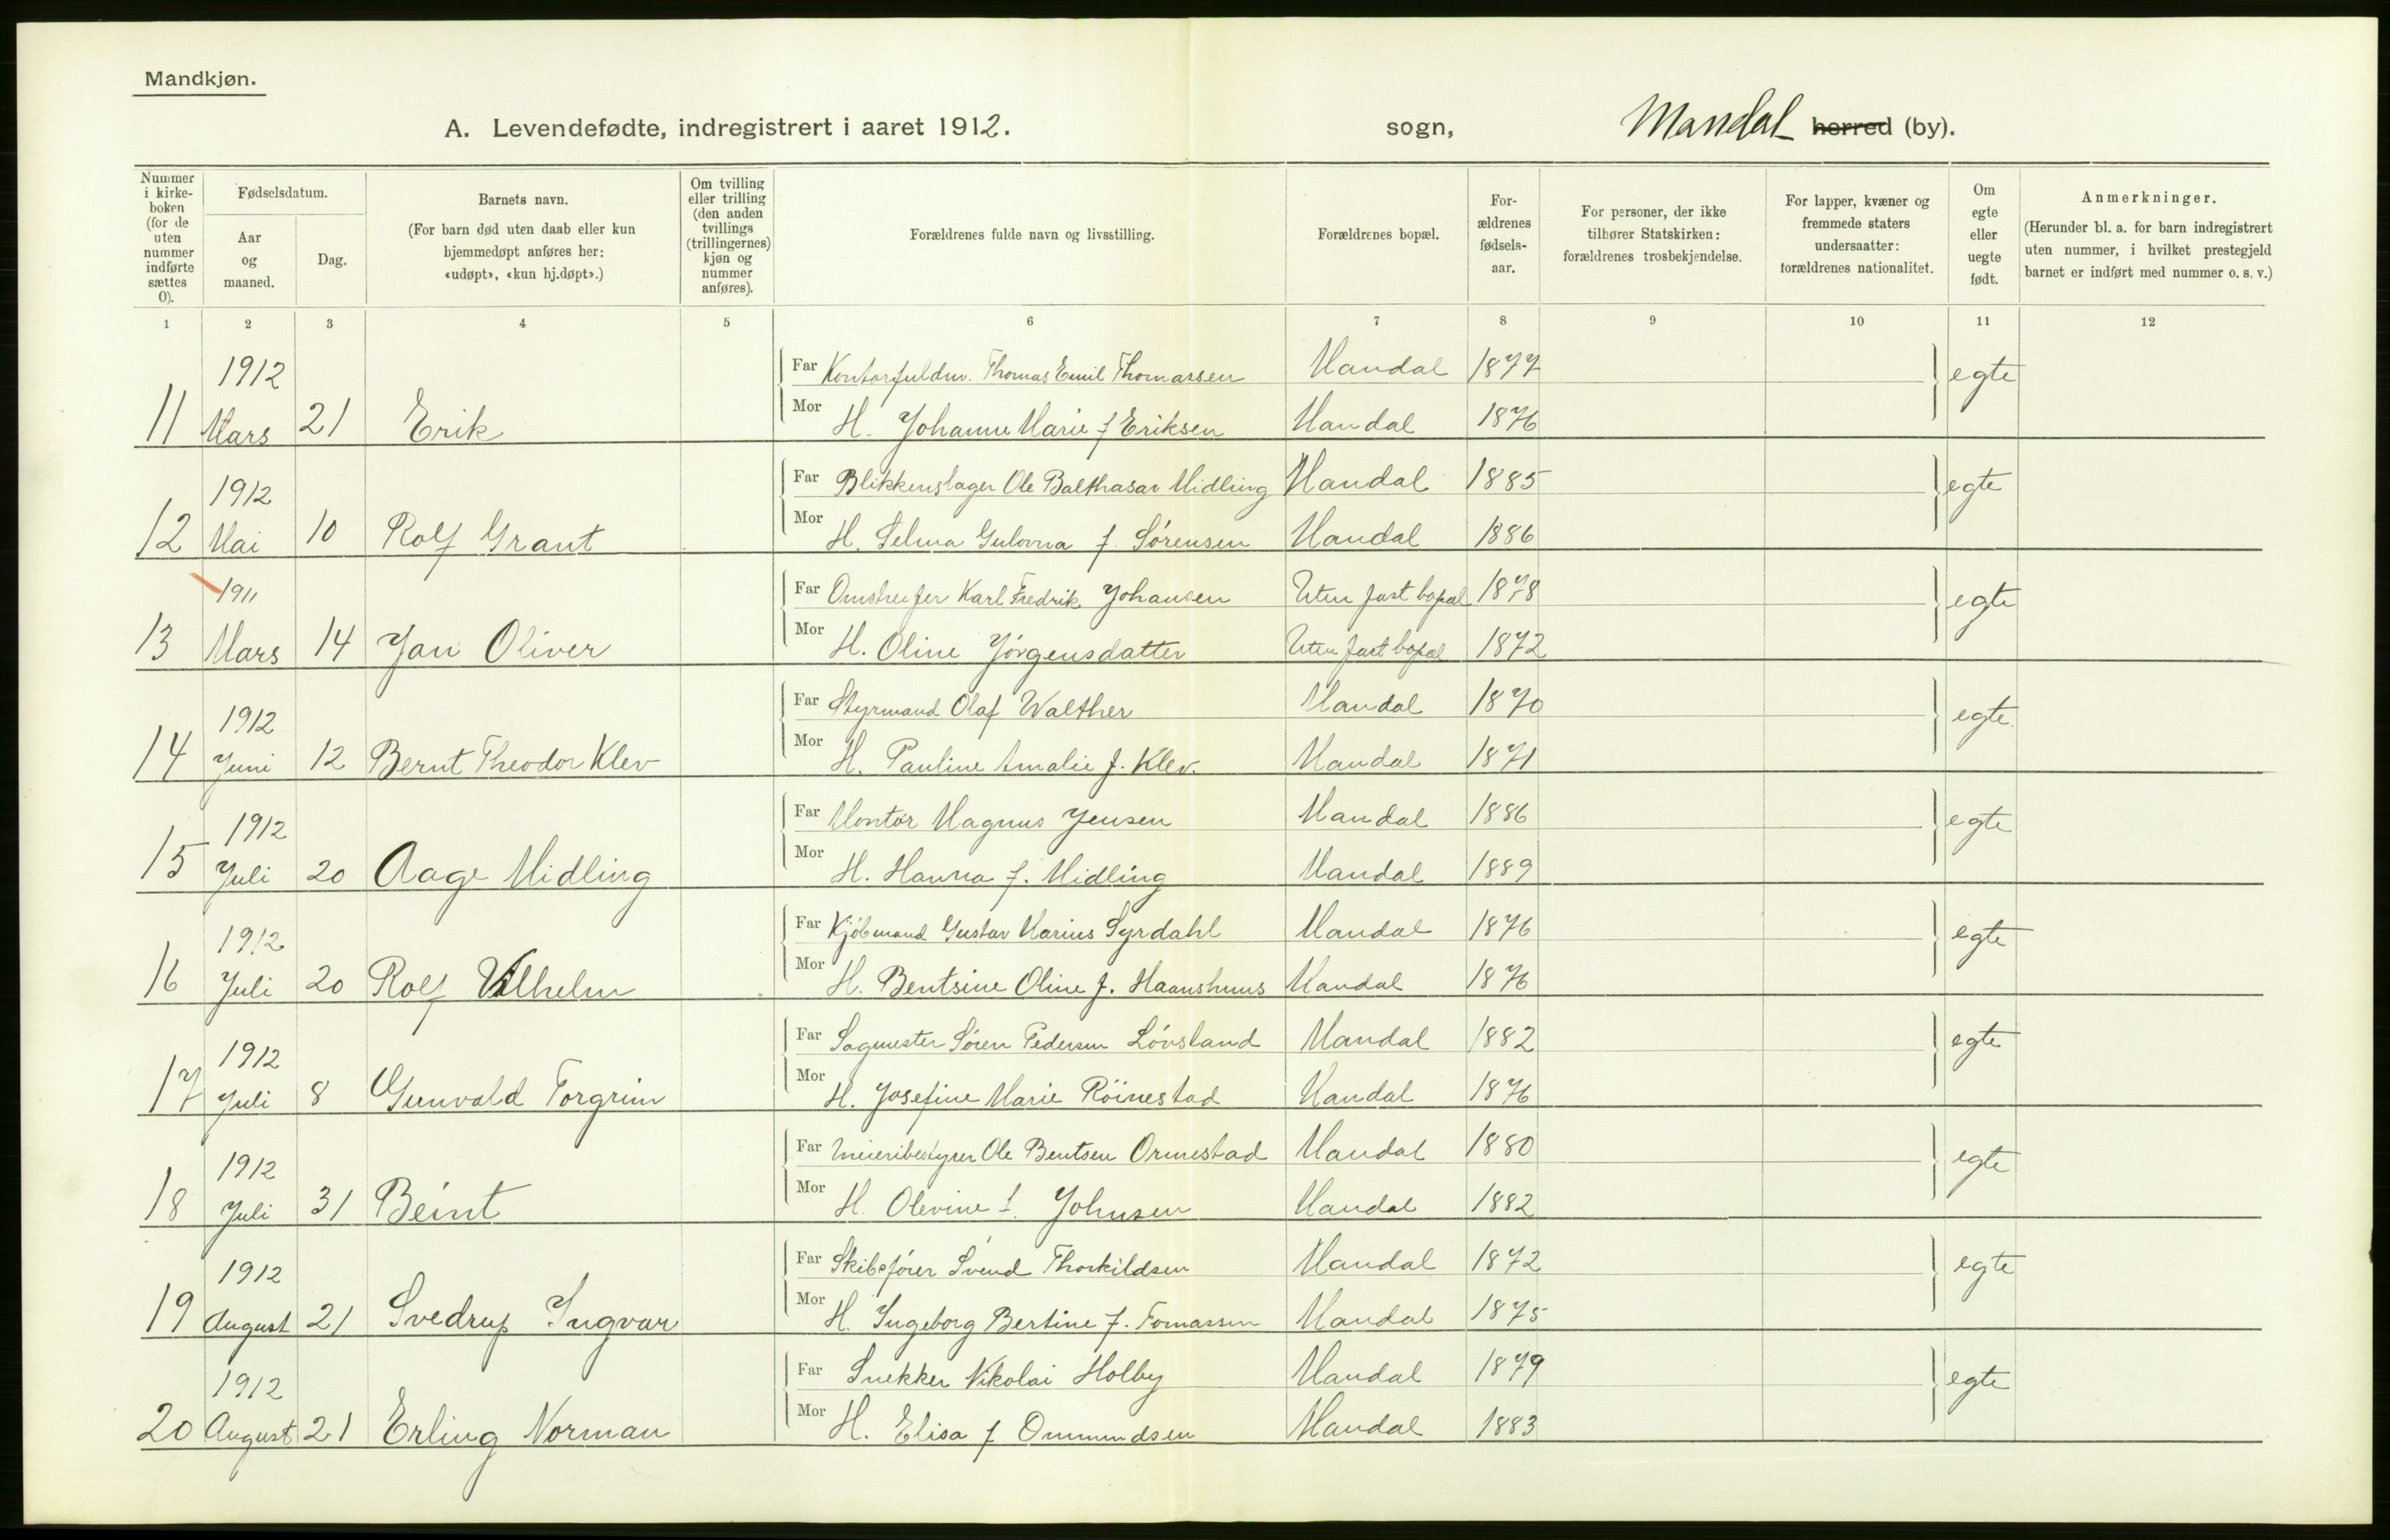 Mandkjøn.
A. Levendefødte, indregistrert i aaret 1912. sogn, Mandal herred (by).
Nummer i kirke-boken (for de uten nummer indførte sættes 0).
Fødselsdatum.
Aar og maaned.
Dag.
Barnets navn.
(For barn død uten daab eller kun hjemmedøpt anføres her: «udøpt», «kun hj.døpt».)
Om tvilling eller trilling (den anden tvillings (trillingernes) kjøn og nummer anføres).
Forældrenes fulde navn og livsstilling.
Forældrenes bopæl.
For-ældrenes fødsels-aar.
For personer, der ikke tilhører Statskirken: forældrenes trosbekjendelse.
For lapper, kvæner og fremmede staters undersaatter: forældrenes nationalitet.
Om egte eller uegte født.
Anmerkninger.
(Herunder bl. a. for barn indregistrert uten nummer, i hvilket prestegjeld barnet er indført med nummer o. s. v.)
1 2 3 4 5 6 7 8 9 10 11 12
1912 Far Kontorfuldm. Thomas Emil Thomassen Mandal 1877 egte
11 Mars 21 Erik Mor H. Johanne Marie f Eriksen Mandal 1876
1912 Far Blikkenslager Ole Balthasar Midling Mandal 1885 egte
12 Mai 10 Rolf Grant Mor H. Selma Gulovna f. Sørensen Mandal 1886
1911 Far Omstreifer Karl Fredrik Johansen Uten fast bopæl 1878 egte
13 Mars 14 Jan Oliver Mor H. Oline Jörgensdatter Uten fast bopæl 1872
1912 Far Styrmand Olaf Walther Mandal 1870 egte.
14 Juni 12 Bernt Theodor Klev Mor H. Pauline Amalie f. Klev. Mandal 1871
1912 Far Montør Magnus Jensen Mandal 1886 egte
15 Juli 20 Aage Midling Mor H. Hanna f. Midling Mandal 1889
1912 Far Kjöbmand Gustav Marius Syrdahl Mandal 1876 egte
16 Juli 20 Rolf Vilhelm Mor H. Bentsine Oline f. Haanshuus Mandal 1876
1912 Far Sagmester Sören Pedersen Lövsland Mandal 1882 egte
17 Juli 8 Gunvald Torgrim Mor H. Josefine Marie Röinestad Mandal 1876
1912 Far Meieribestyrer Ole Bentsen Ormestad Mandal 1880 egte
18 Juli 31 Beint Mor H. Olevine f. Johnsen Mandal 1882
1912 Far Skibsförer Svend Thorkildsen Mandal 1872 egte
19 August 21 Svedrup Ingvar Mor H. Ingeborg Bertine f. Tomassen Mandal 1875
1912 Far Snekker Nikolai Holby Mandal 1879 egte
20 August 21 Erling Norman Mor H. Elisa f Ommundsen Mandal 1883